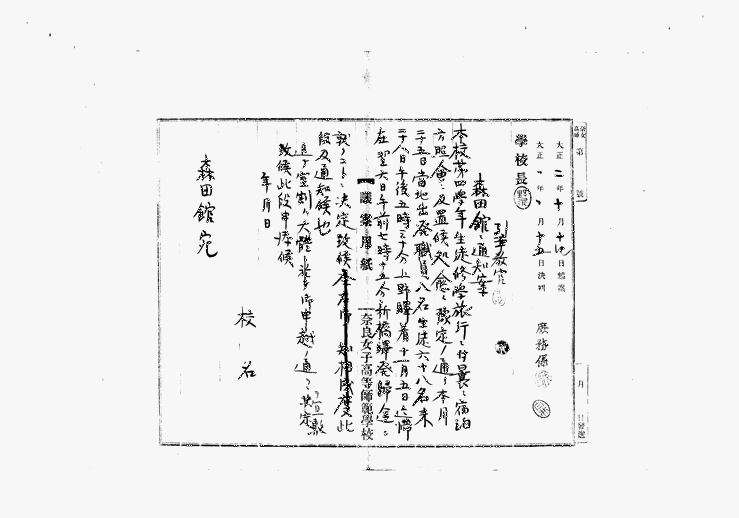 大正二年十月十九日起案
大正 年 月十五日決判
庶務係
學校長
引率教官
森田館ヘ通知案
本校第四學年生徒修學旅行ニ付曩ニ宿泊
方照會ニ及置候処愈々豫定ノ通リ本月
二十五日當地出発職員八名生徒六十八名来
二十八日午後五時三十分上野驛着十一月五日迠滞
在翌六日午前七時十五分新橋驛発歸途ニ
就クコトニ決定致候 此
段及通知候也
追テ室割ハ大體御申越ノ通ニ決定
致候此段申添候
年月日
校名
森田館宛
議案用紙
奈良女子高等師範學校
第 號
月 日發送